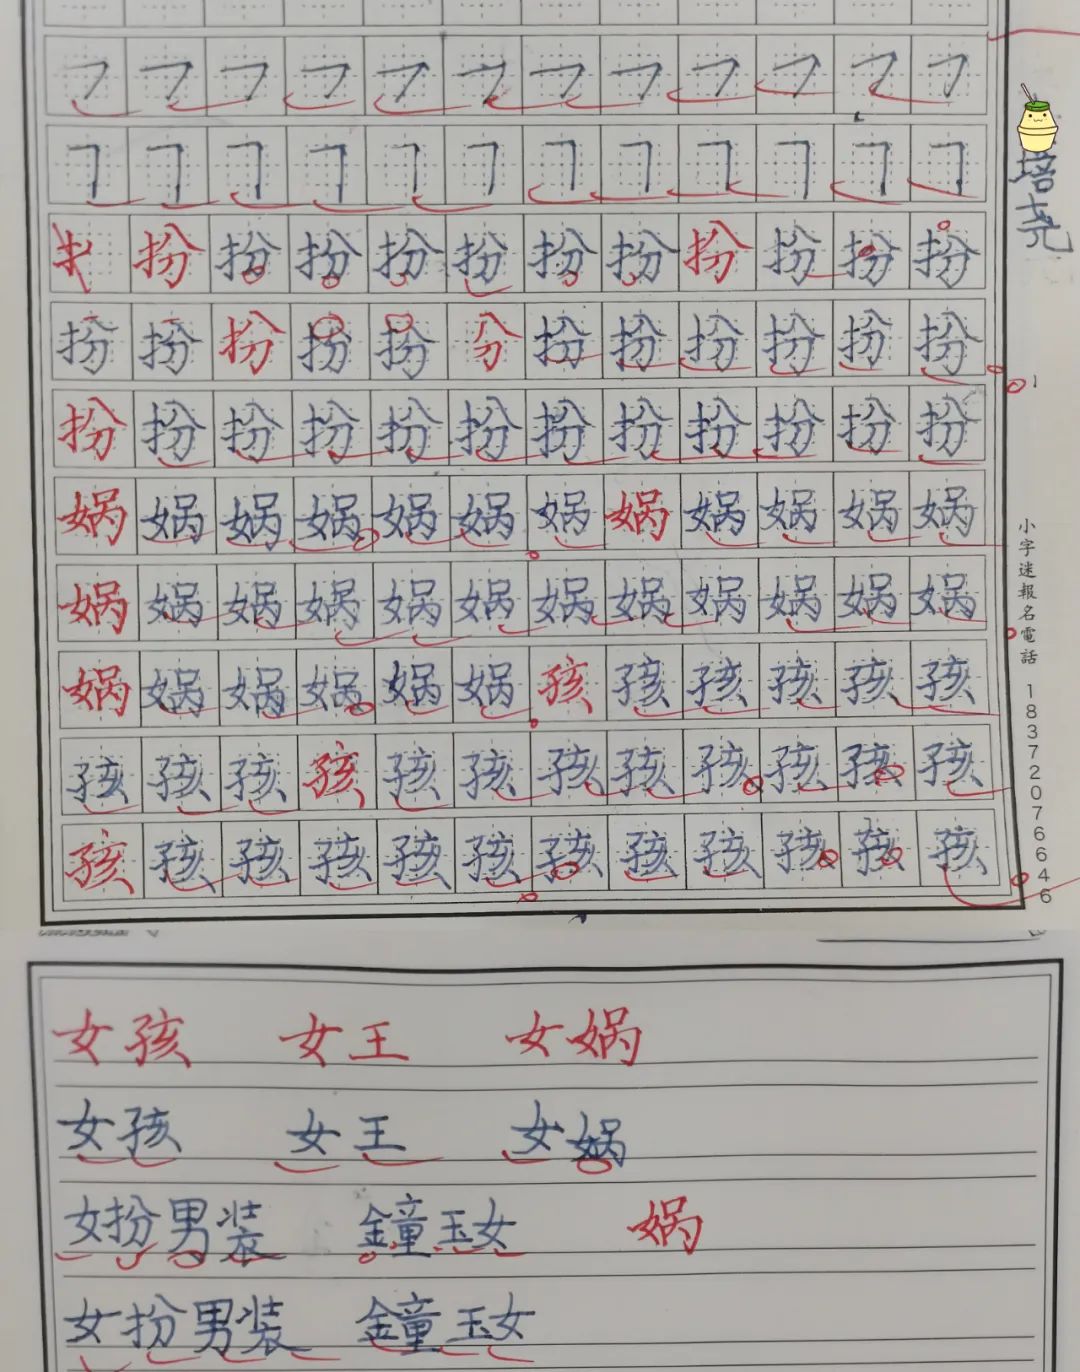 𠃌 𠃌 𠃌 𠃌 𠃌 𠃌 𠃌 𠃌 𠃌 𠃌 𠃌 𠃌
𠃌 𠃌 𠃌 𠃌 𠃌 𠃌 𠃌 𠃌 𠃌 𠃌 𠃌 𠃌
扌 扮 扮 扮 扮 扮 扮 扮 扮 扮 扮 扮
扮 扮 扮 扮 扮 分 扮 扮 扮 扮 扮 扮
扮 扮 扮 扮 扮 扮 扮 扮 扮 扮 扮 扮
娲 娲 娲 娲 娲 娲 娲 娲 娲 娲 娲 娲
娲 娲 娲 娲 娲 娲 娲 娲 娲 娲 娲 娲
娲 娲 娲 娲 娲 娲 孩 孩 孩 孩 孩 孩
孩 孩 孩 孩 孩 孩 孩 孩 孩 孩 孩 孩
孩 孩 孩 孩 孩 孩 孩 孩 孩 孩 孩 孩
培尧
小字迷報名電話 18372076646
女孩 女王 女娲
女孩 女王 女娲
女扮男装 鐘玉女 娲
女扮男装 鐘玉女